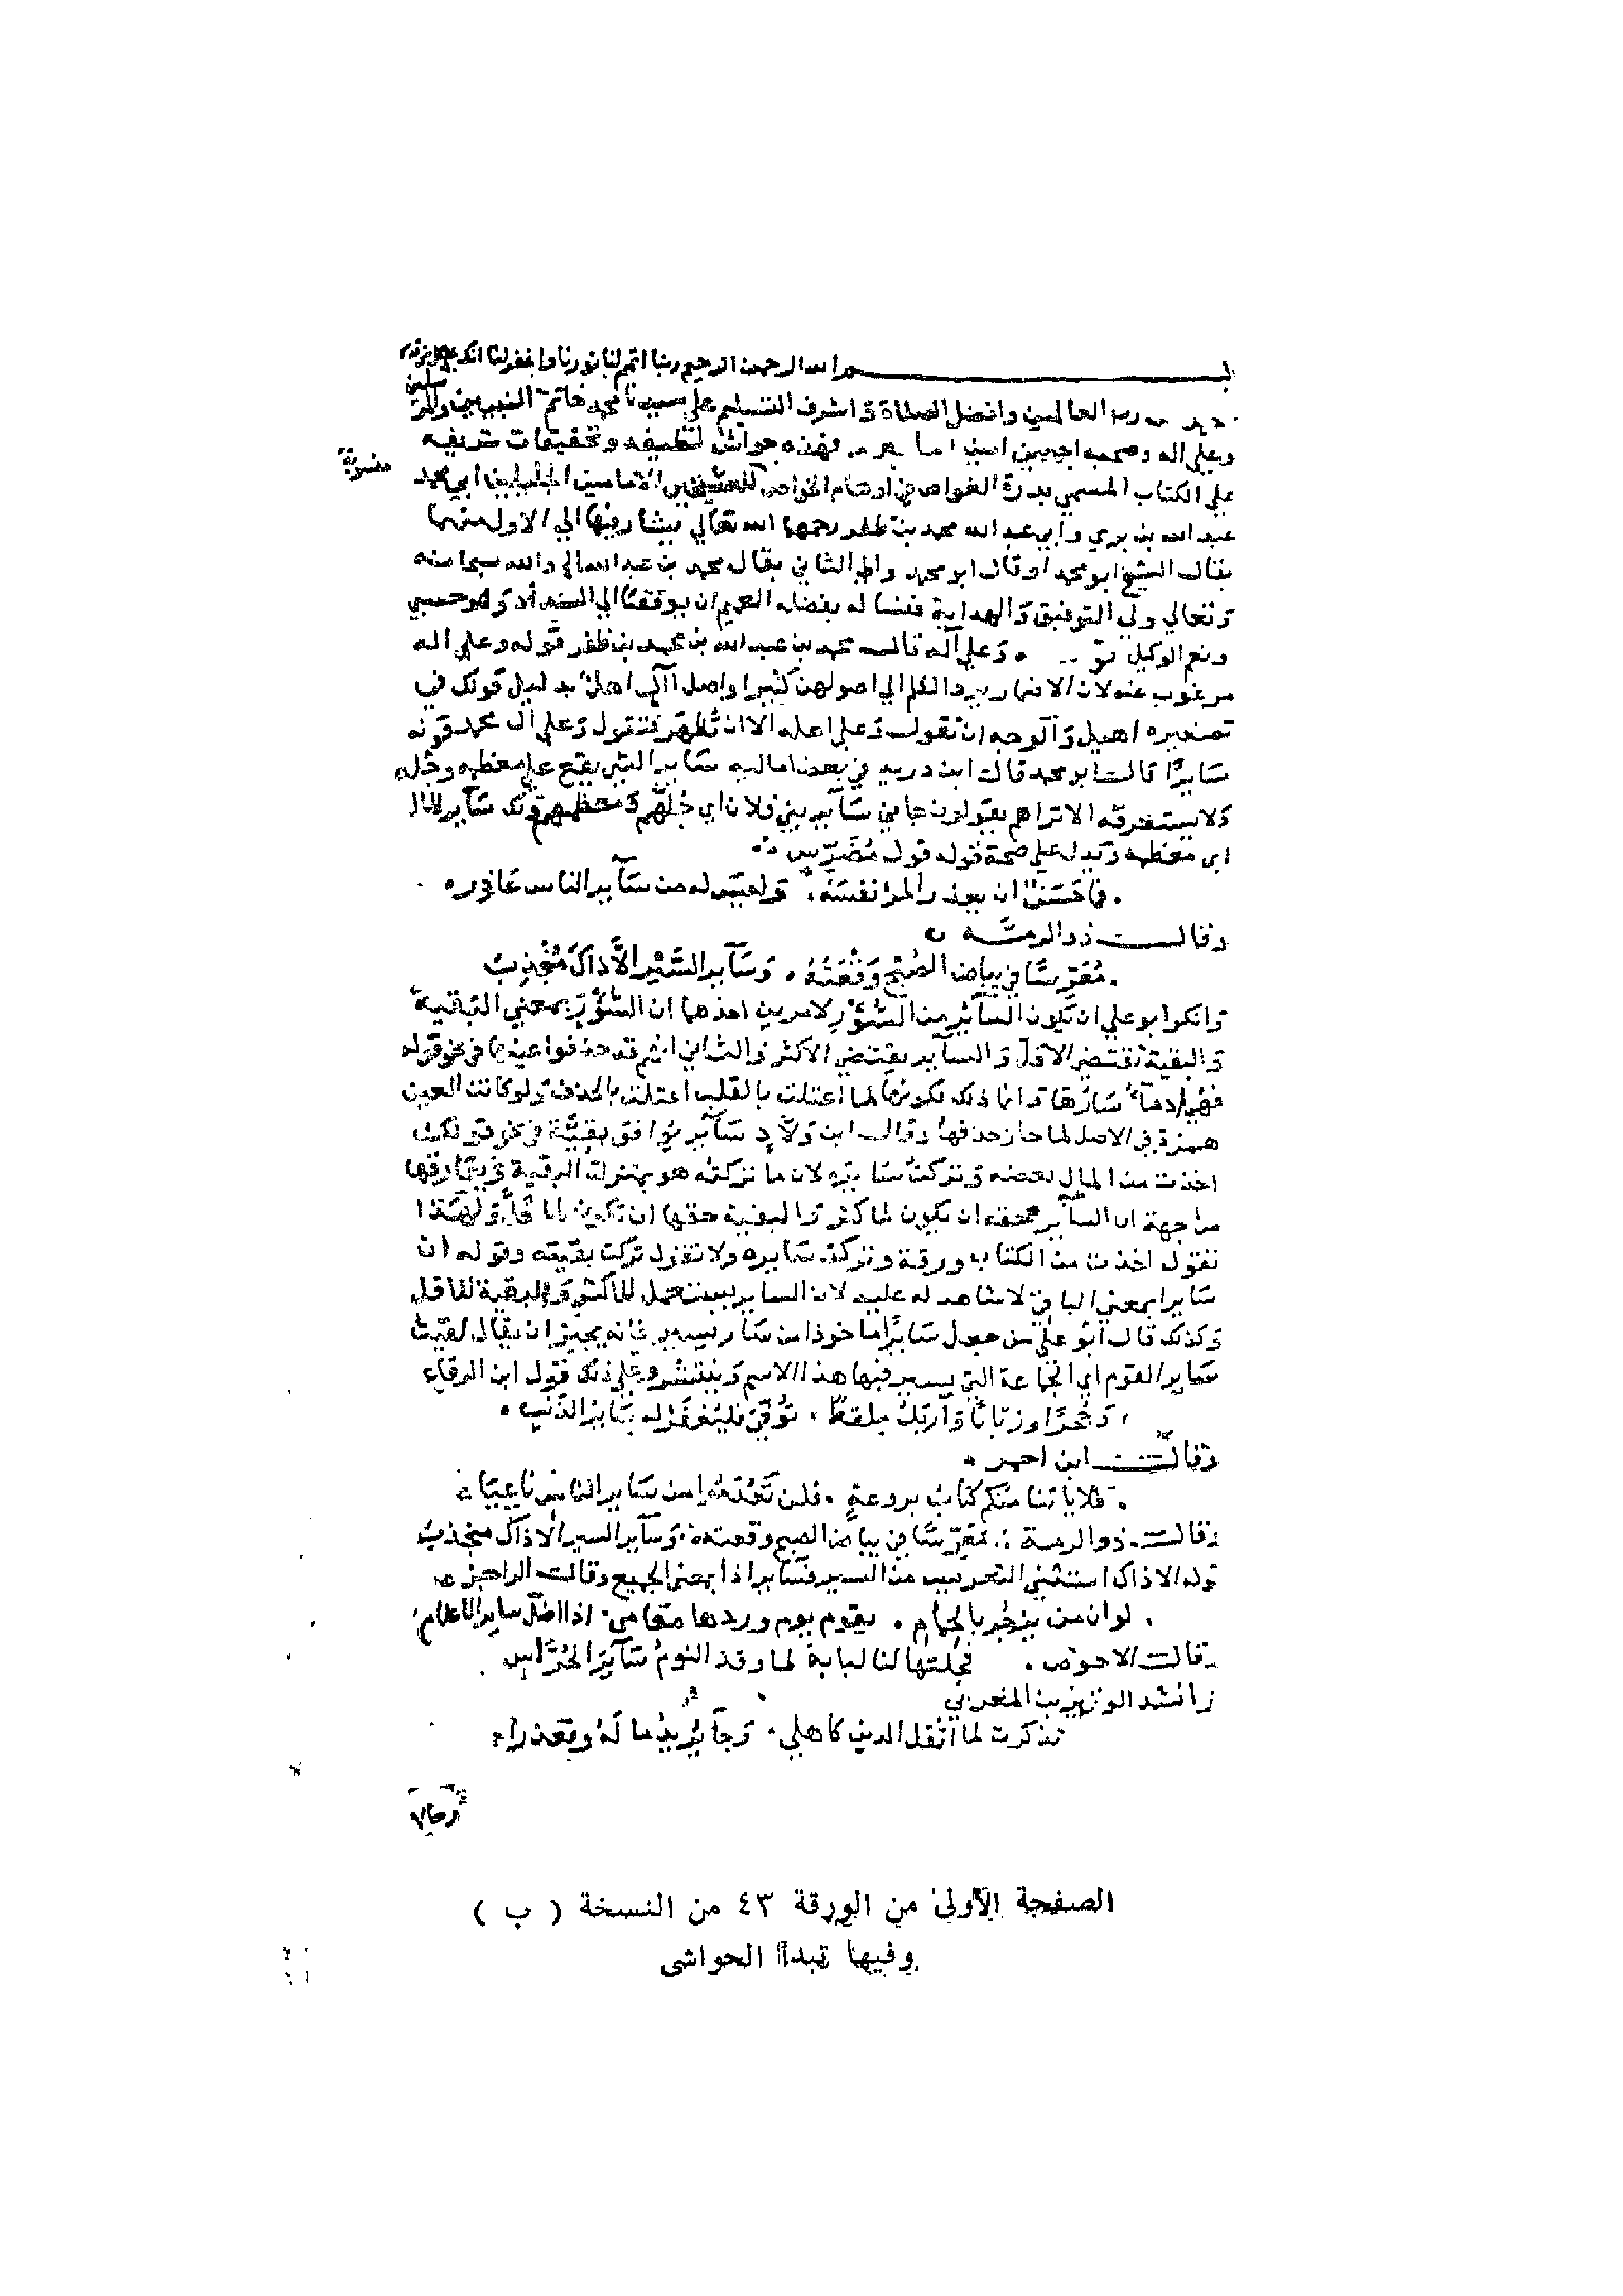 بسم الله الرحمن الرحيم ربنا اتمم لنا نورنا واغفر لنا انك
رب العالمين وافضل الصلاة واشرف التسليم على سيدنا محمد خاتم النبيين والمرسلين
وعلى اله وصحبه اجمعين امين اما بعد فهذه حواش لطيفه وتحقيقات شريفه منسوبة
على الكتاب المسمى بدرة الغواص في اوهام الخواص للشيخين الامامين الجليلين ابي محمد
عبد الله بن بري وابي عبد الله محمد بن ظفر رحمهما الله تعالى يشار فيها الى الاول منهما
بقال الشيخ ابو محمد او قال ابو محمد والى الثاني بقال محمد بن عبد الله والله سبحانه
وتعالى ولي التوفيق والهداية فنساله بفضله العميم ان يوفقنا الى السداد وهو حسبي
ونعم الوكيل وعلى آله قال محمد بن عبد الله بن محمد بن ظفر قوله وعلى اله
مرغوب عنه لان الاضمار يرد الكلم الى اصولهن كثيرا واصل آل اهل بدليل قولك في
تصغيره اهيل والوجه ان تقول وعلى اهله الا ان تظهر فتقول وعلى آل محمد قوله
سايرا قال ابو محمد قال ابن دريد في بعض اماليه ساير الشي يقع على معظمه وجله
ولا يستغرقه الا تراهم يقولون جاني ساير بني فلان اي جلهم ومعظمهم ولك ساير المال
اي معظمه ويدل على صحة قوله قول مضرس
فما حسن ان يعذر المرء نفسه وليس له من ساير الناس عاذره
وقال ذو الرمة
معرسا في بياض الصبح وقعته وساير السير الا ذاك منجذب
وانكر ابو علي ان يكون الساير من السؤر لامرين احدهما ان السؤر بمعنى البقية
والبقية تقتضي الاقل والساير يقتضي الاكثر والثاني انهم قد حذفوا عينها في نحو قوله
فهي ادماء سارها وانما ذلك لكونها لما اعتلت بالقلب اعتلت بالحذف ولو كانت العين
همزة في الاصل لما جاز حذفها وقال ابن ولاد ساير يوافق بقية في نحو قولك
اخذت من المال بعضه وتركت سايره لان ما تركته هو بمنزلة البقية ويفارقها
من جهة ان الساير حقه ان يكون لما كثر والبقية حقها ان تكون لما قل ولهذا
تقول اخذت من الكتاب ورقة وتركت سايره ولا تقول تركت بقيته وقوله ان
سايرا بمعنى الباقي لا شاهد له عليه لان الساير يستعمل للاكثر والبقية للاقل
وكذلك قال ابو علي من جعل سايرا ماخوذا من سار يسير فانه يجيز ان يقال لقيت
ساير القوم اي الجماعة التي يسير فيها هذا الاسم وينتشر وعلى ذلك قول ابن الرقاع
وحجرا وزبانا توفي فليغفر له ساير الذنب
وقال ابن احمر
فلا ياتنا منكم كتاب بروعة فلن تعدموا من ساير الناس ناعيا
وقال ذو الرمة معرسا في بياض الصبح وقعته وساير السير الا ذاك منجذب
قوله الا ذاك استثنى التعريس من السير فساير اذا بمعنى الجميع وقال الراجز
لو ان من يزجر بالحمام يقوم يوم وردها مقامي اذا اضل ساير الاعلام
وقال الاحوص فجلتها لنا لبابة لما وقذ النوم ساير الحراس
وانشد الوزير بن المغربي
تذكرت لما اثقل الدين كاهلي وجا يزيد ماله وتعذرا
رجال
الصفحة الأولى من الورقة ٤٣ من النسخة ( ب )
وفيها تبدأ الحواشى